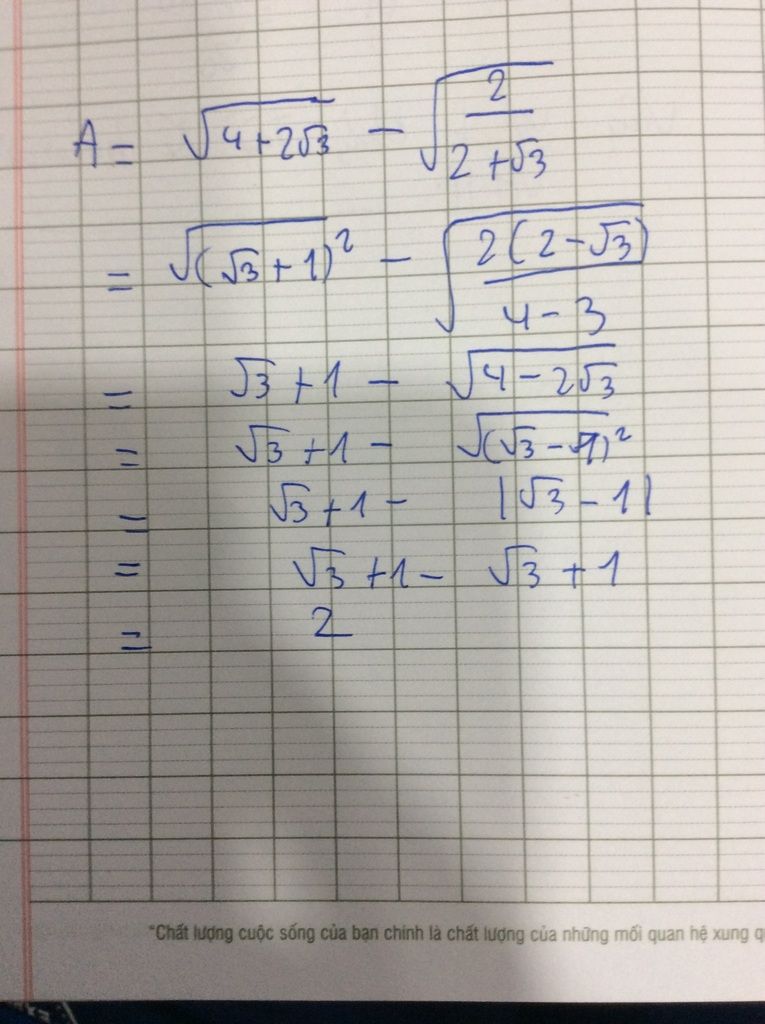 A = √(4+2√3) − √(2/(2+√3))
= √(√3+1)² − √(2(2−√3)/(4−3))
= √3+1 − √(4−2√3)
= √3+1 − √(√3−1)²
= √3+1 − |√3−1|
= √3+1 − √3+1
= 2
"Chất lượng cuộc sống của bạn chính là chất lượng của những mối quan hệ xung